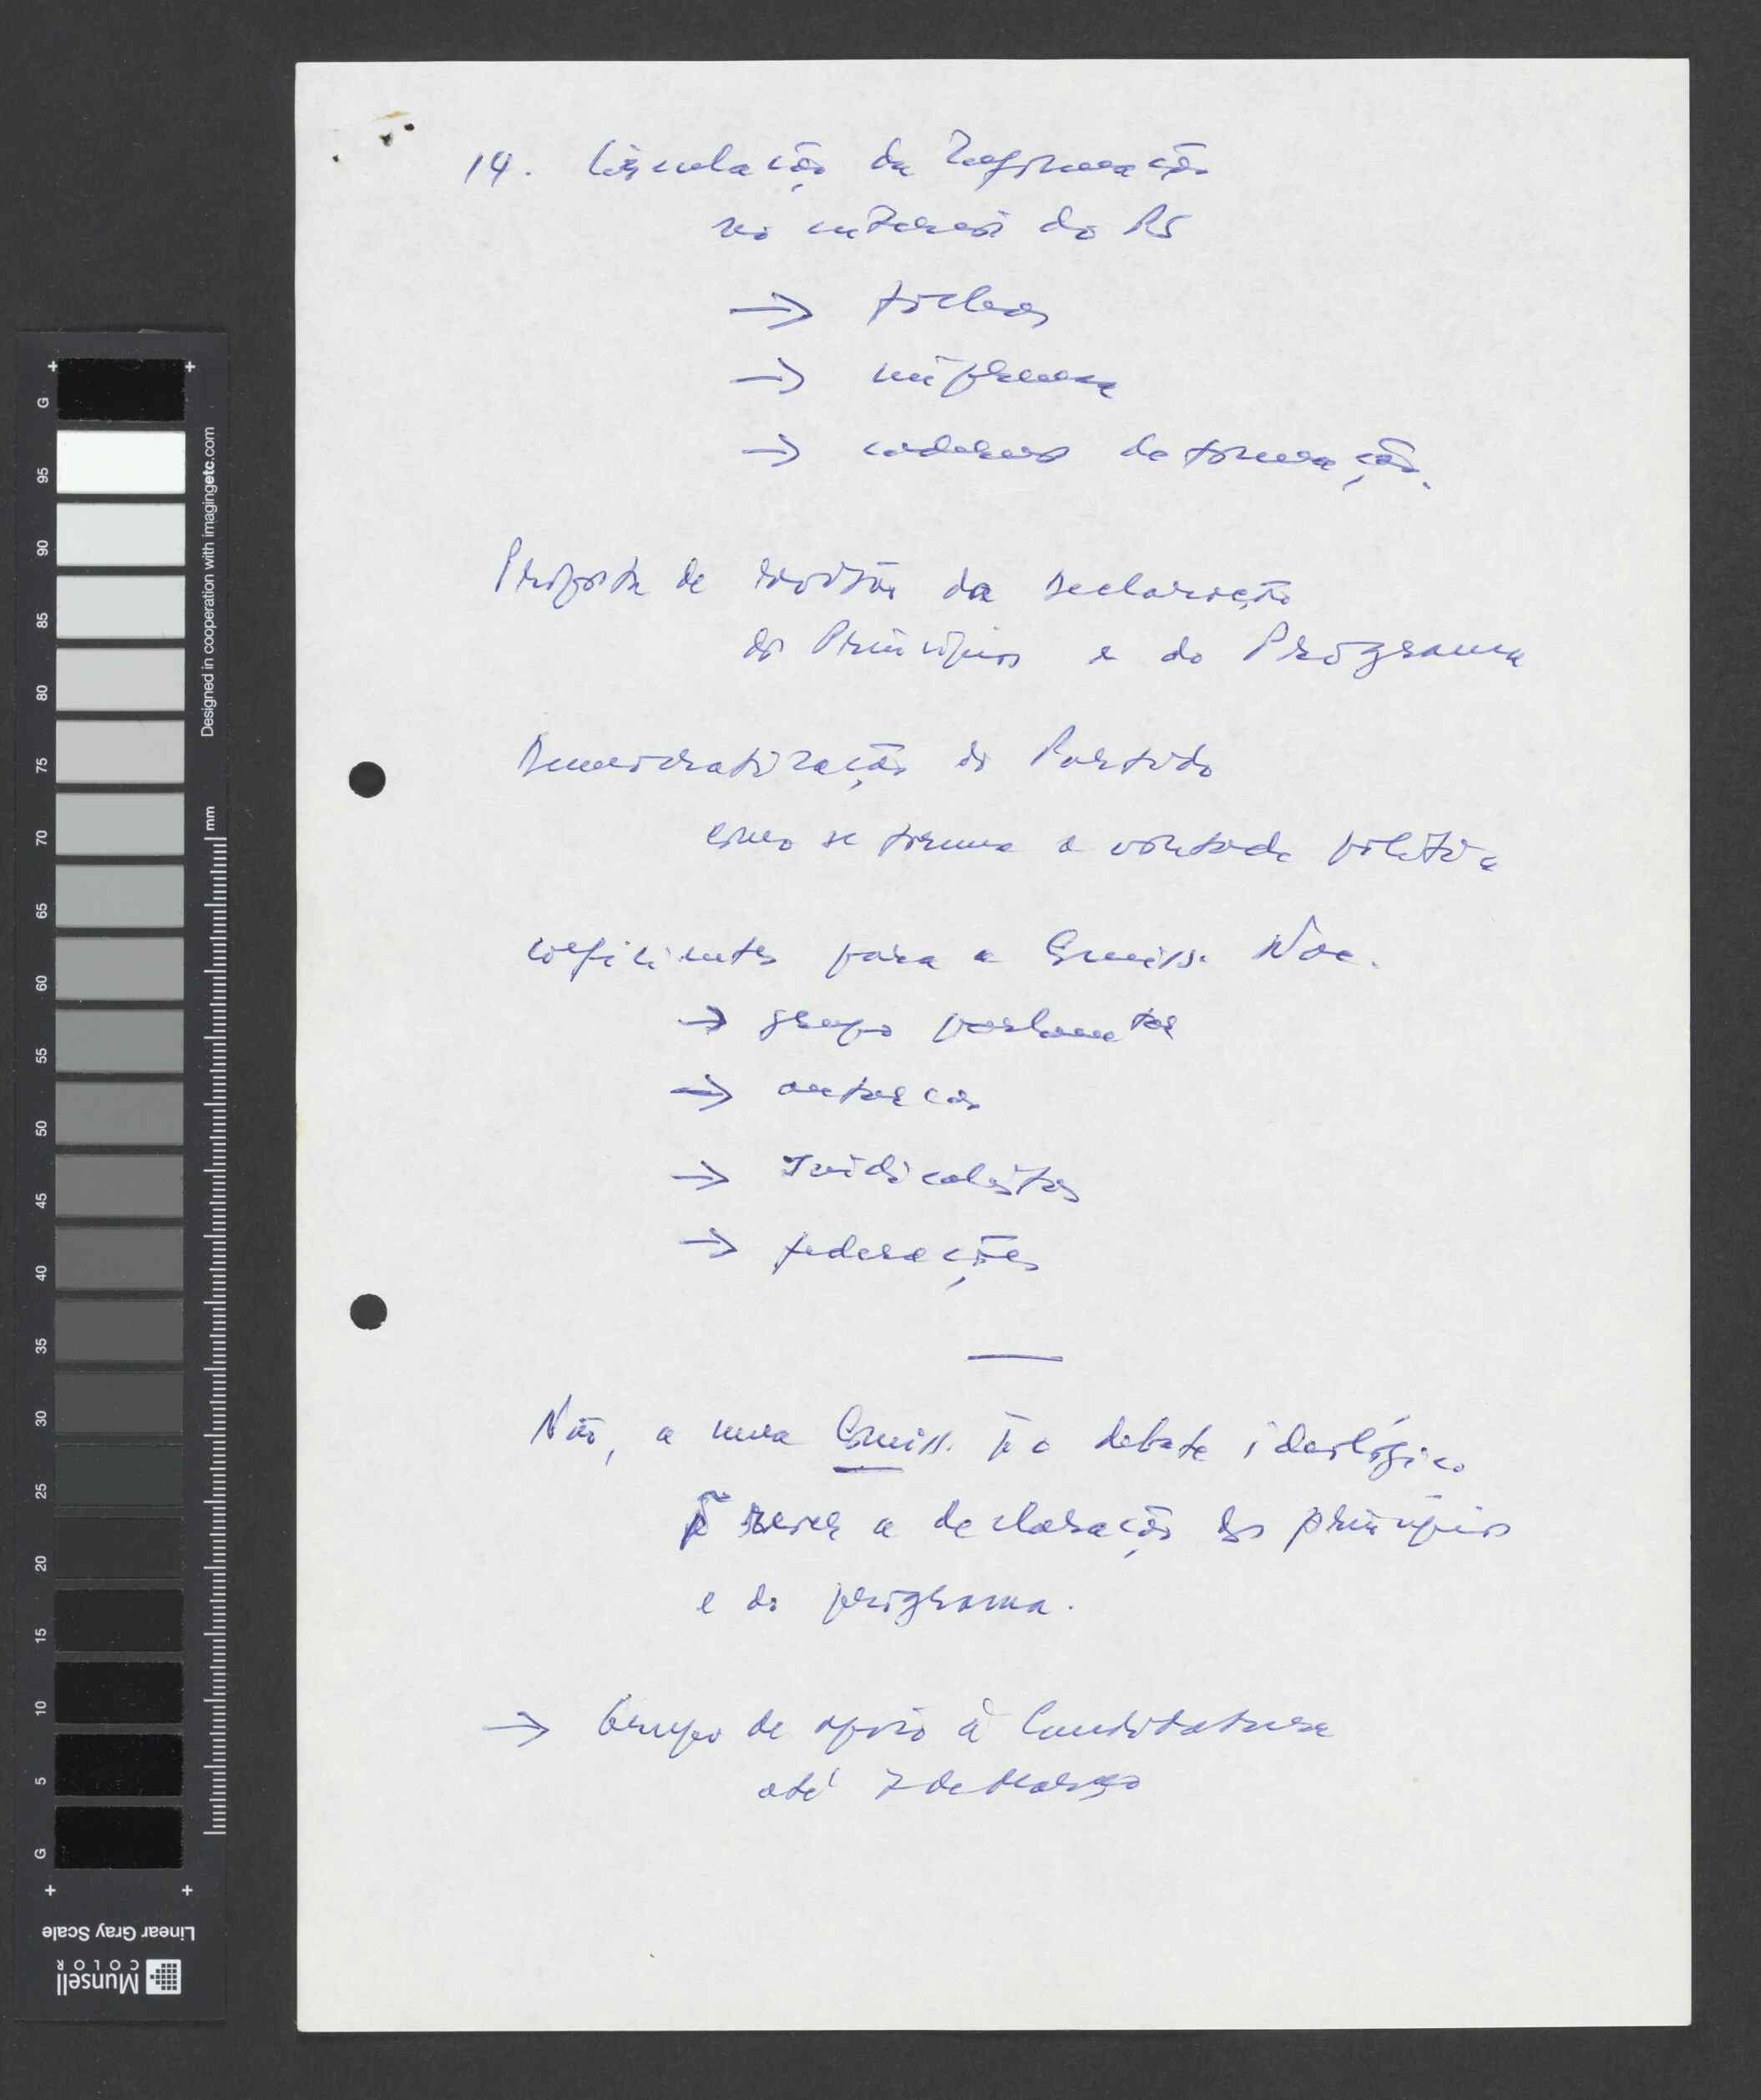 14. Circulação da Informação
no interior do PS
→ fichas
→ imprensa
→ cadernos de formação.
Proposta de revisão da Declaração
de Princípios e do Programa
Democratização do Partido
como se forma a vontade política
coeficientes para a Comiss. Nac.
→ grupo parlamentar
→ autarcas
→ Sindicalistas
→ federações
Não, a uma Comiss. p/ o debate ideológico
rever a declaração de princípios
e do programa.
→ Grupo de apoio à Candidatura
até 7 de Março
G
95
90
85
80
75
70
65
60
55
50
45
40
35
30
25
20
15
10
5
G
Designed in cooperation with imagingetc.com
mm
Linear Gray Scale
Munsell
COLOR